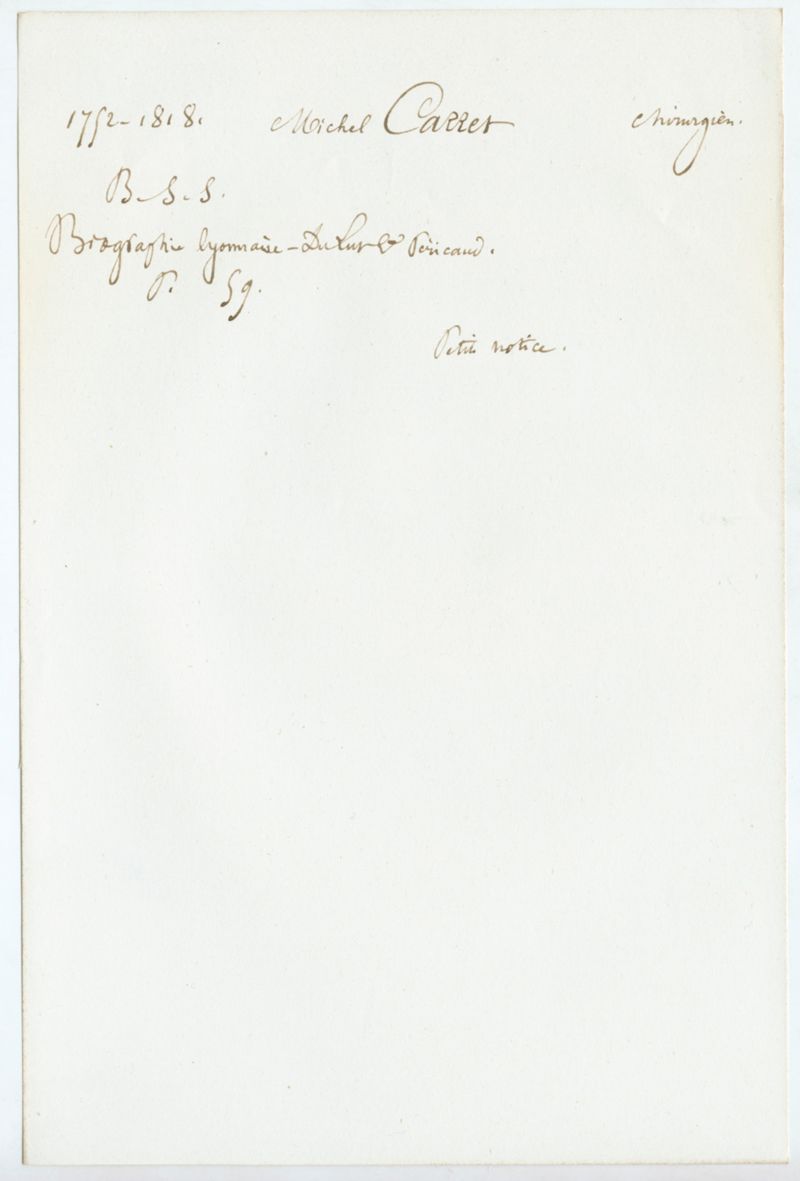 1752-1818. Michel Carret chirurgien.
B-S-S.
Biographie lyonnaise - Du Lut & Péricaud.
P. 59.
Petite notice.